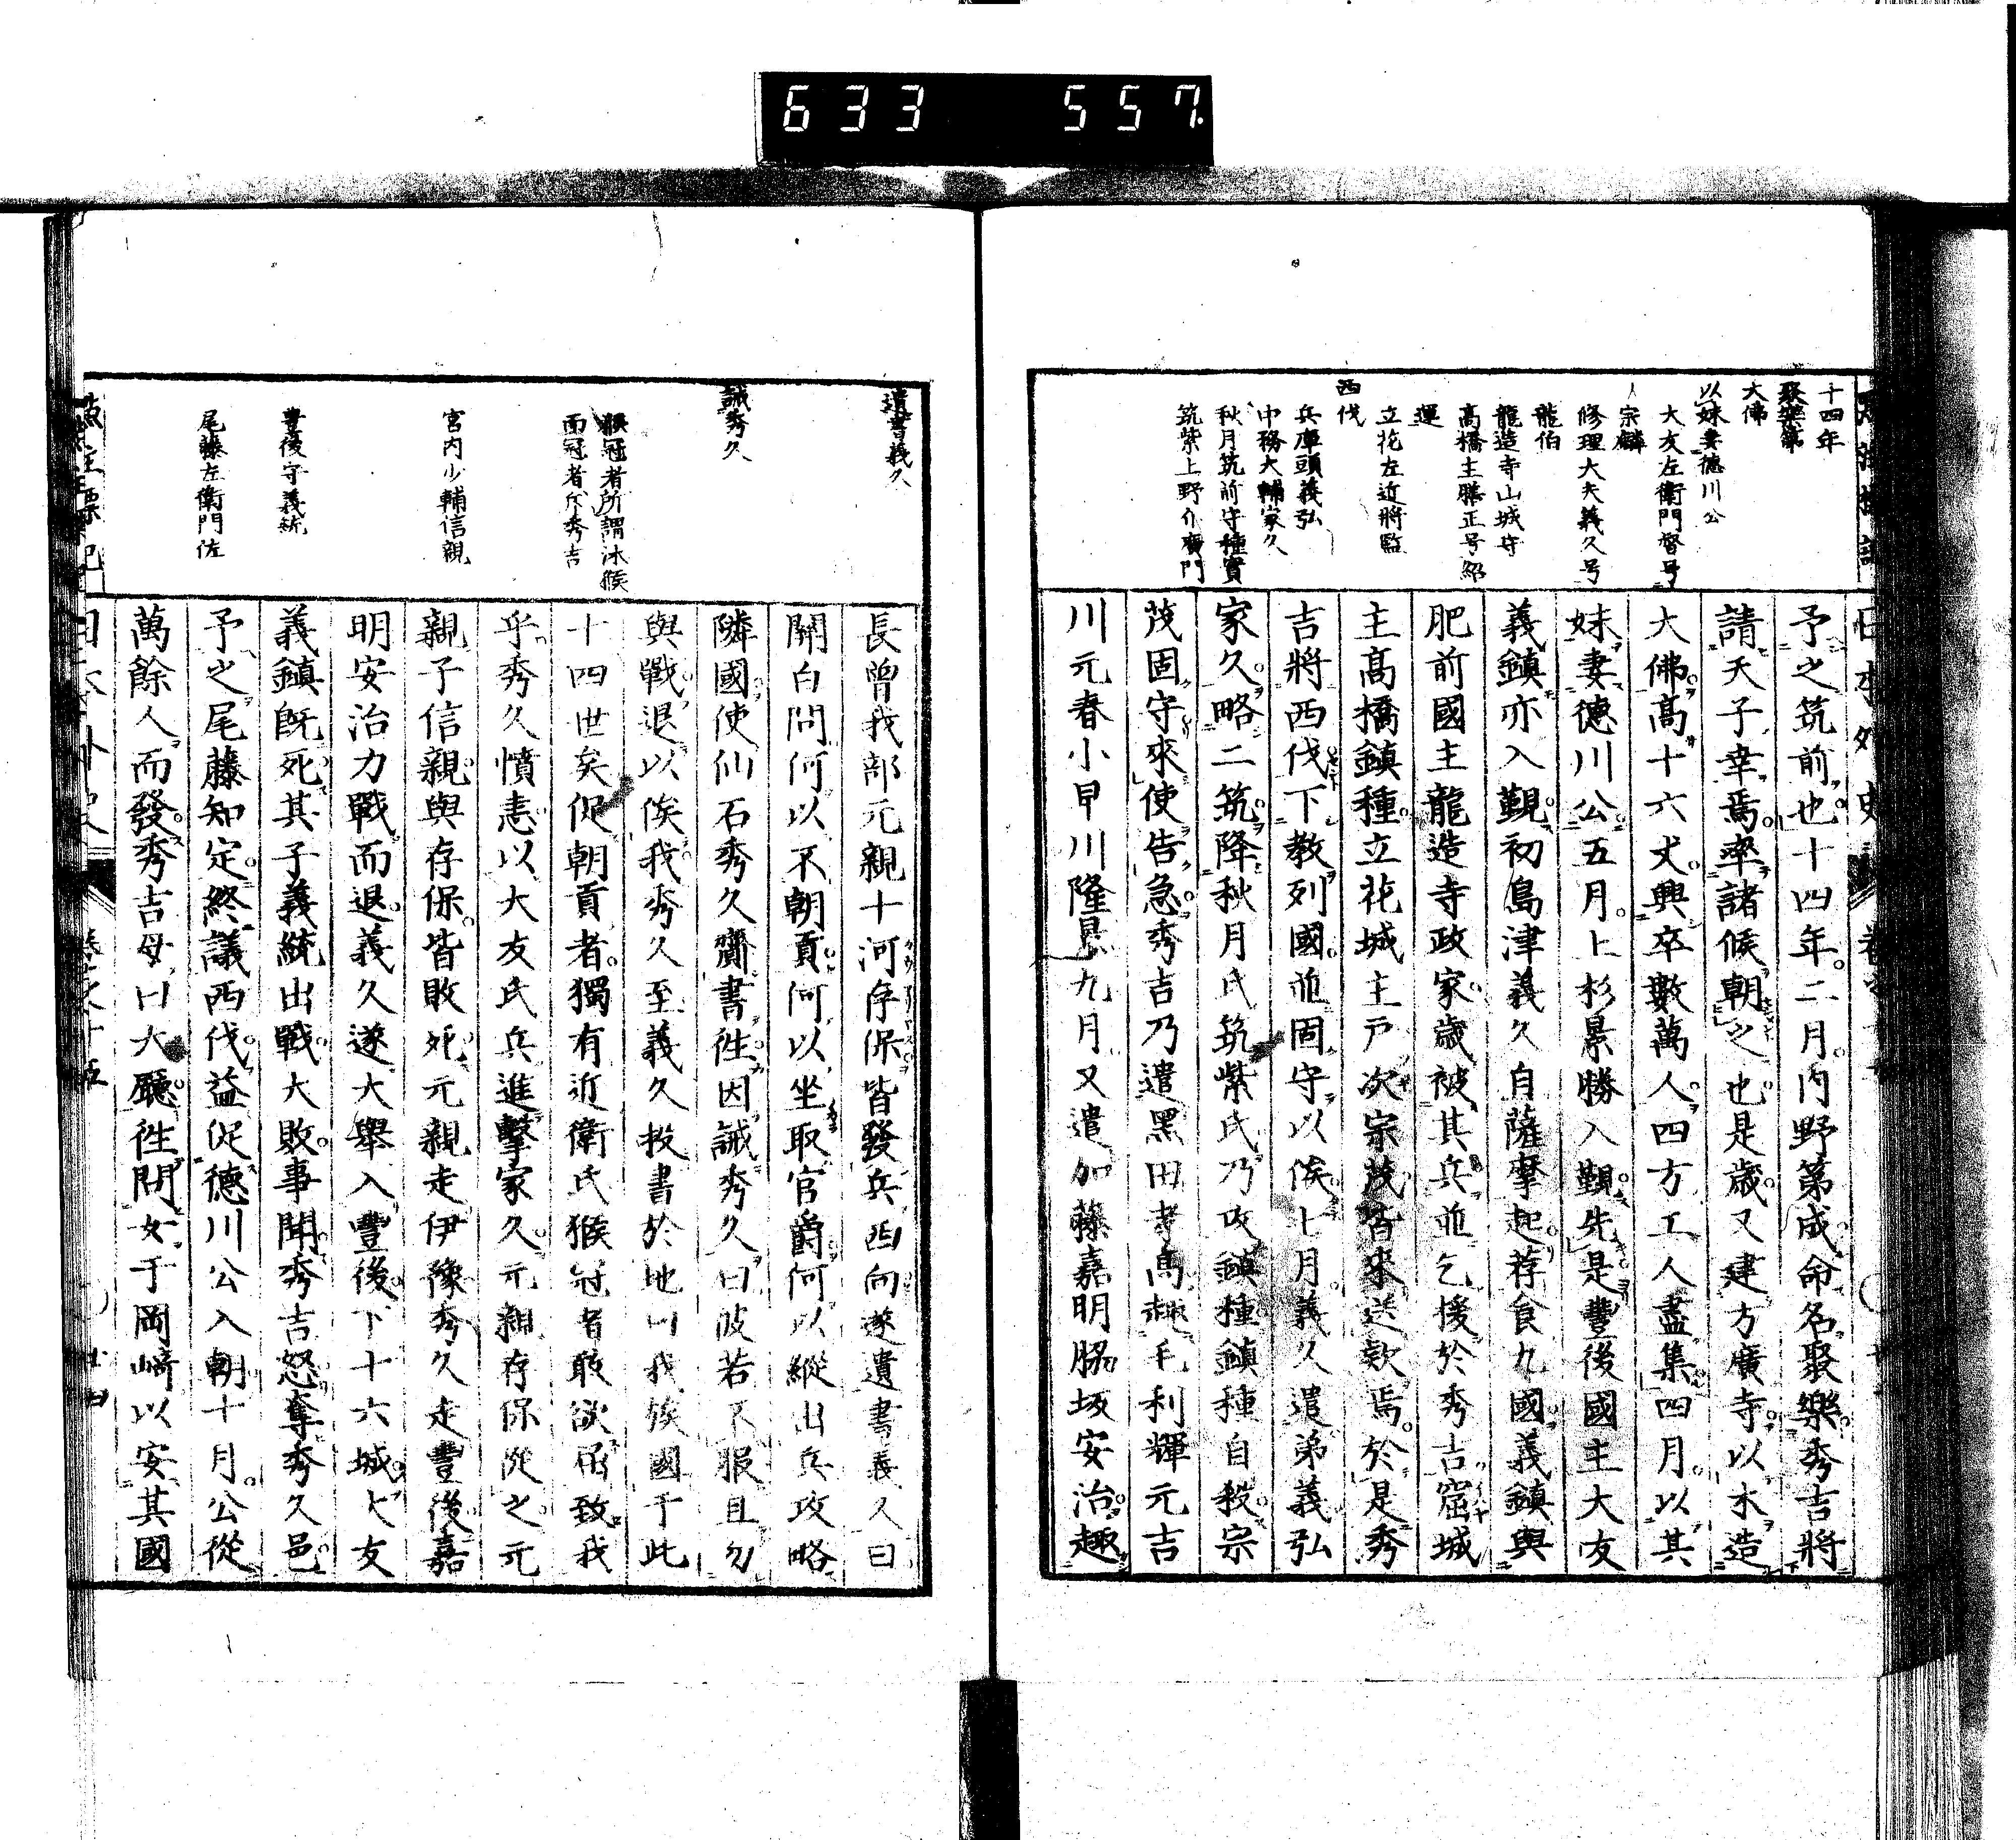 633 557
十四年
聚樂第
大佛
以妹妻德川公
大友左衛門督号
宗麟
修理大夫義久号
龍伯
龍造寺山城守
高橋主膳正号紹
運
立花左近將監
西伐
兵庫頭義弘
中務大輔家久
秋月筑前守種實
筑紫上野介廣門
予之筑前也十四年二月内野第成命名聚樂秀吉將
請天子幸焉率諸侯朝之也是歲又建方廣寺以木造
大佛高十六丈興卒數萬人四方工人盡集四月以其
妹妻德川公五月上杉景勝入覲先是豐後國主大友
義鎮亦入覲初島津義久自薩摩起荐食九國義鎮與
肥前國主龍造寺政家歲被其兵並乞援於秀吉窟城
主高橋鎮種立花城主戸次宗茂皆來送款焉於是秀
吉將西伐下教列國並固守以俟七月義久遣弟義弘
家久略二筑降秋月氏筑紫氏乃攻鎮種鎮種自殺宗
茂固守來使告急秀吉乃遣黑田孝高趣毛利輝元吉
川元春小早川隆景九月又遣加藤嘉明脇坂安治趣
遺書義久
誡秀久
猴冠者所謂沐猴
而冠者斥秀吉
宮内少輔信親
豊後守義統
尾藤左衛門佐
長曾我部元親十河存保皆發兵西向遂遺書義久曰
關白問何以不朝貢何以坐取官爵何以縱出兵攻略
隣國使仙石秀久齎書徃因誡秀久曰彼若不服且勿
與戰退以俟我秀久至義久投書於地曰我族國于此
十四世矣促朝貢者獨有近衛氏猴冠者敢欲屈致我
乎秀久憤恚以大友氏兵進擊家久元親存保從之元
親子信親與存保皆敗死元親走伊豫秀久走豐後嘉
明安治力戰而退義久遂大舉入豐後下十六城大友
義鎮既死其子義統出戰大敗事聞秀吉怒奪秀久邑
予之尾藤知定終議西伐益促德川公入朝十月公從
萬餘人而發秀吉母曰大廳徃問女于岡崎以安其國